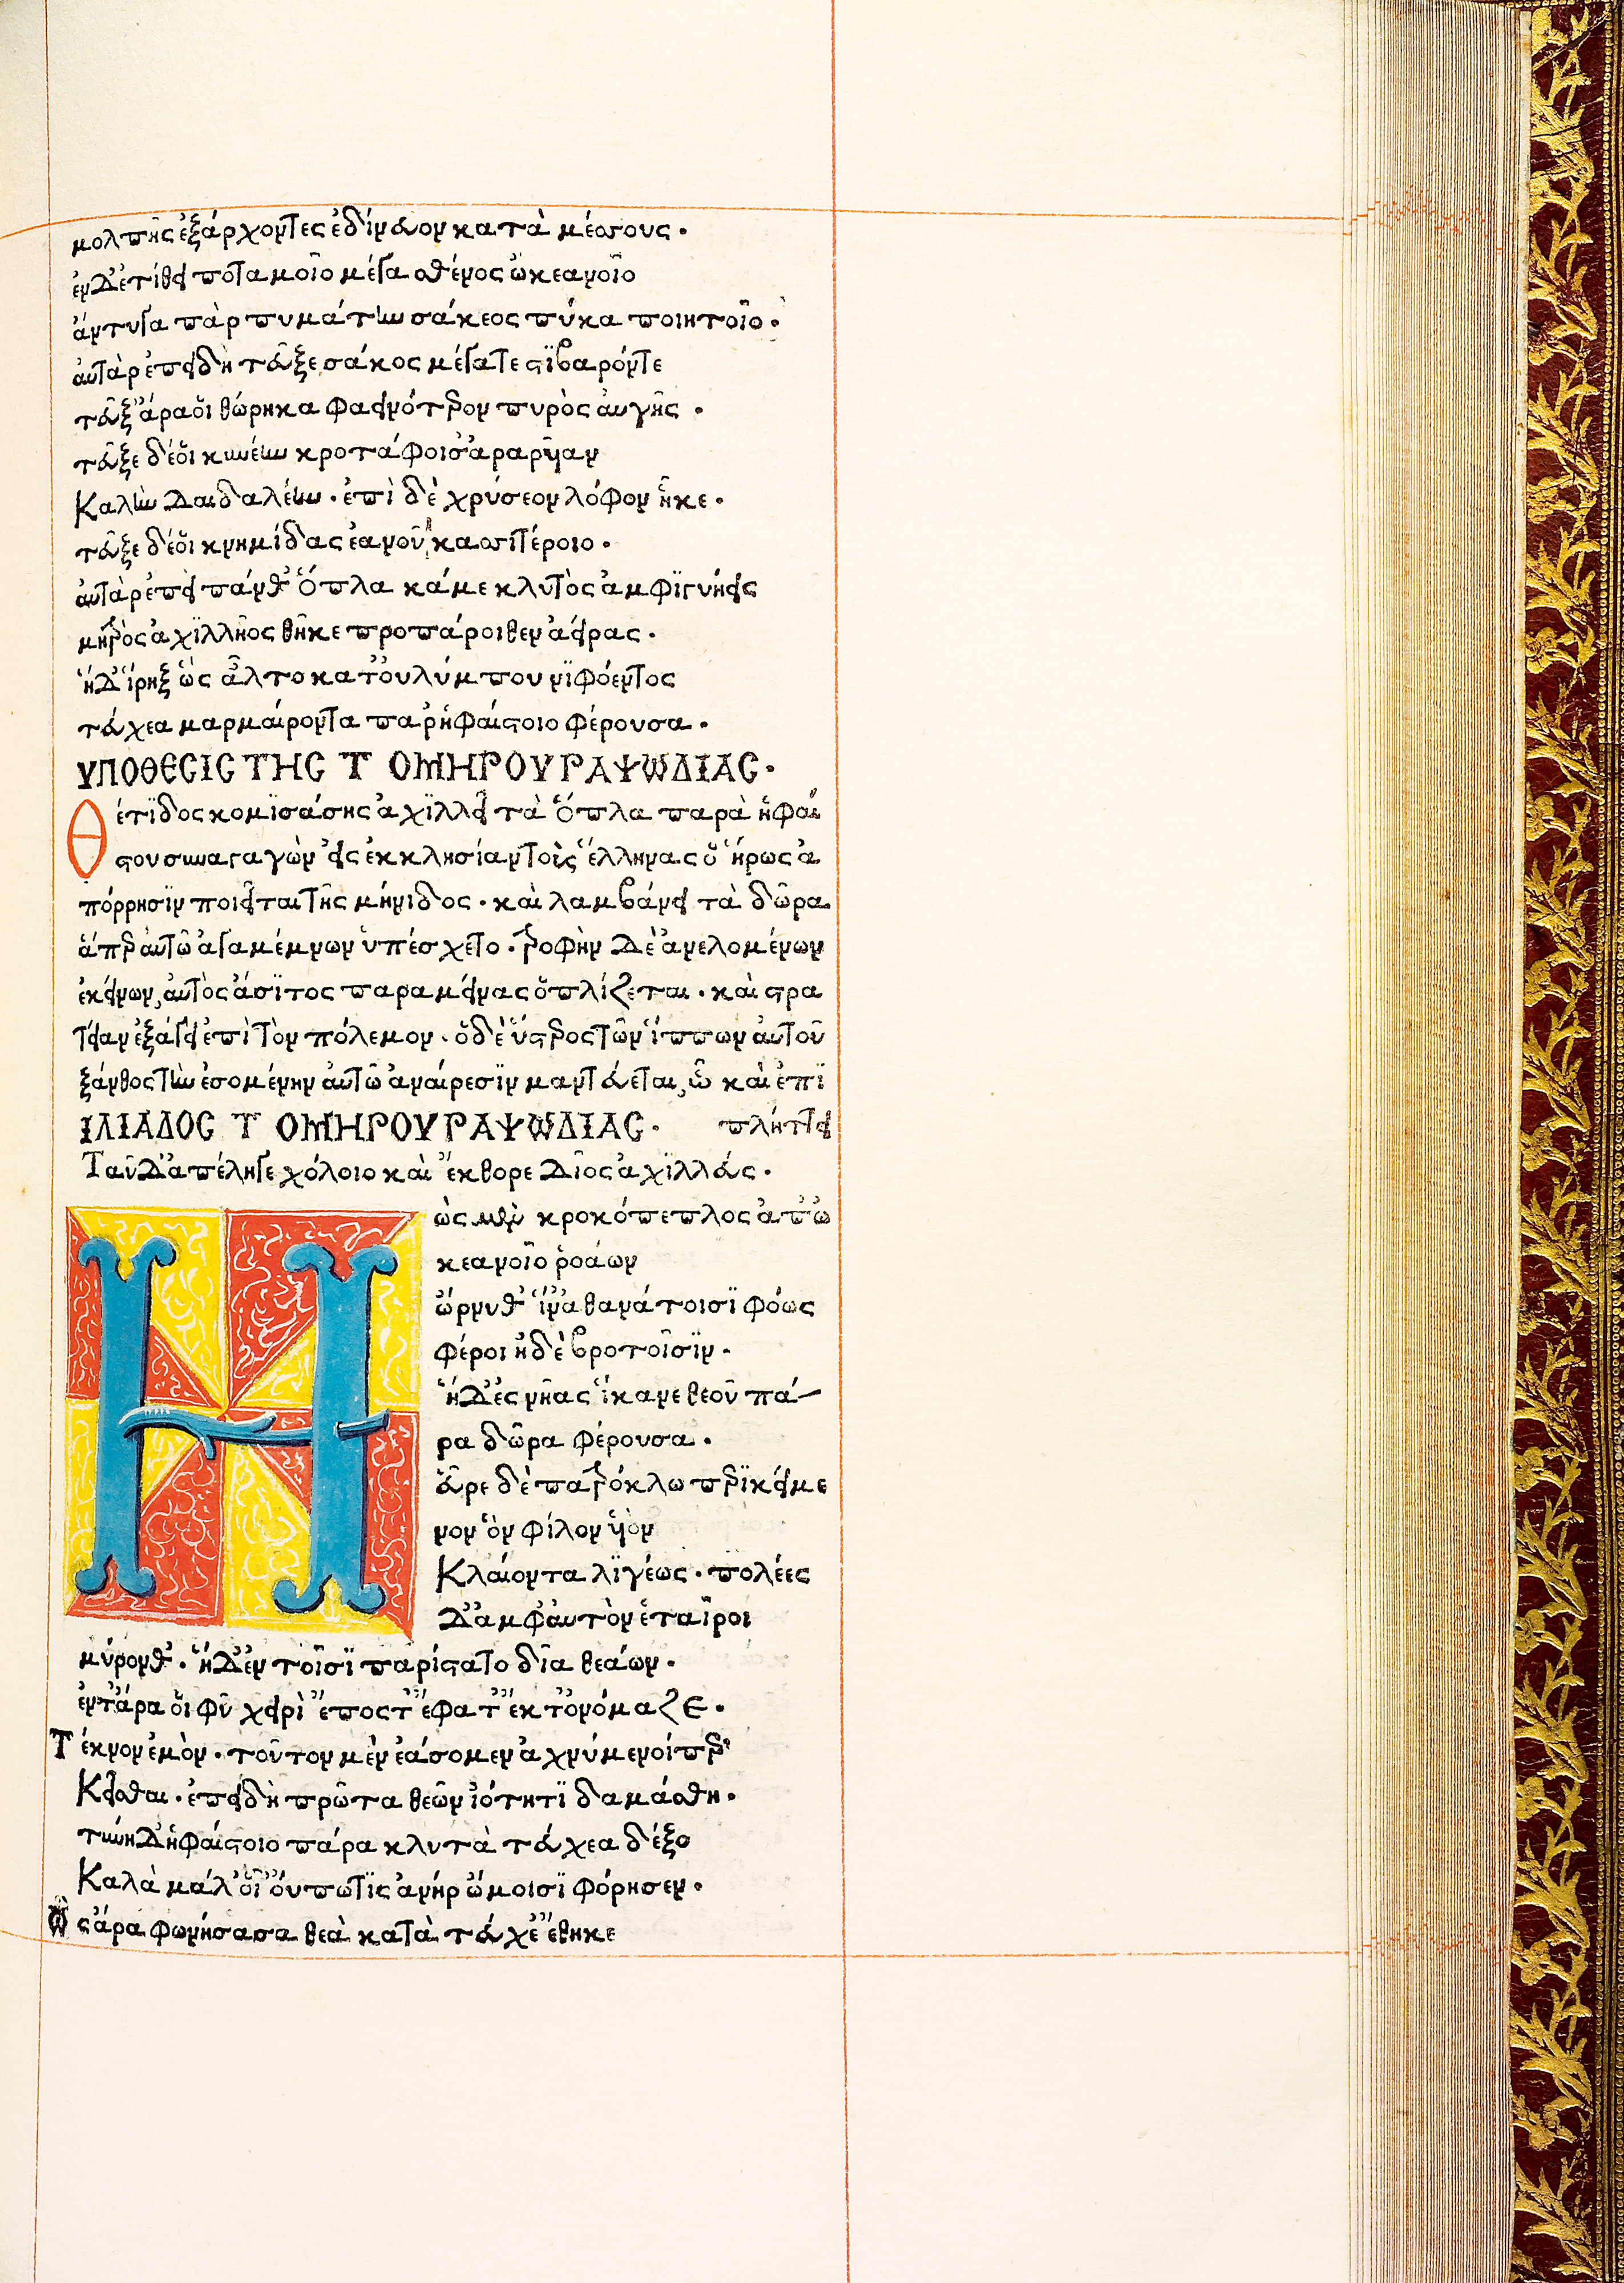 μολπῆς ἐξάρχοντες ἐδίνευον κατὰ μέσσους.
ἐν δ' ἐτίθει ποταμοῖο μέγα σθένος ὠκεανοῖο
ἄντυγα πὰρ πυμάτην σάκεος πύκα ποιητοῖο.
αὐτὰρ ἐπειδὴ τεῦξε σάκος μέγα τε στϊβαρόν τε
τεῦξ' ἄρα ὅι θώρηκα φαεινότερον πυρὸς αὐγῆς.
τεῦξε δέ ὅι κυνέην κροτάφοισ' ἀραρῆαν
Καλὴν Δαιδαλέην. ἐπὶ δὲ χρύσεον λόφον ἧκε.
τεῦξε δέ ὅι κνημίδας ἑανοῦ κασσιτέροιο.
αὐτὰρ ἐπεὶ πάνθ' ὅπλα κάμε κλυτὸς ἀμφϊγυήεις
μητρὸς ἀχϊλλῆος θῆκε προπάροιθεν ἀείρας.
ἡ Δ' ἴρηξ ὣς ἆλτο κατ' ὀυλύμπου νϊφόεντος
τεύχεα μαρμαίροντα παρ' ἡφαίστοιο φέρουσα.
ΥΠΟΘΕΣΙΣ ΤΗΣ Τ ΟΜΗΡΟΥ ΡΑΨΩΔΙΑΣ.
Θέτϊδος κομϊσάσης ἀχϊλλεῖ τὰ ὅπλα παρὰ ἡφαί
στου συναγαγὼν εἰς ἐκκλησίαν τοὺς ἕλληνας ὁ ἥρως ἀ
πόρρησϊν ποιεῖται τῆς μήνιδος. καὶ λαμβάνει τὰ δῶρα
ἅπερ αὐτῶ ἀγαμέμνων ὑπέσχετο. τροφὴν Δὲ ἀνελομένων
ἐκείνων, αὐτὸς ἄσϊτος παραμείνας ὁπλίζεται. καὶ στρα
τείαν ἐξάγει ἐπὶ τὸν πόλεμον. ὁ δὲ ὕστερος τῶν ἵππων αὐτοῦ
ξάνθος τὴν ἐσομένην αὐτῶ ἀναίρεσϊν μαντεύεται, ὧ καὶ ἐπϊ
ΙΛΙΑΔΟΣ Τ ΟΜΗΡΟΥ ΡΑΨΩΔΙΑΣ. πλήττει
Ταῦ Δ' ἀπέληγε χόλοιο καὶ ἔκθορε Δῖος ἀχϊλλεύς.
Η ὼς μὲν κροκόπεπλος ἀπ' ὠ
κεανοῖο ῥοάων
ὤρνυθ' ἵν' ἀθανάτοισϊ φόως
φέροι ἠδὲ βροτοῖσϊν.
ἡ Δ' ἐς νῆας ἵκανε θεοῦ πά-
ρα δῶρα φέρουσα.
εὗρε δὲ πατρόκλω περϊκείμε
νον ὃν φίλον ὑιὸν
Κλαίοντα λϊγέως. πολέες
Δ' ἀμφ' αὐτὸν ἑταῖροι
μύρονθ'. ἡ Δ' ἐν τοῖσϊ παρίστατο δῖα θεάων.
ἐν τ' ἄρα ὅι φῦ χειρὶ ἔπος τ' ἔφατ' ἔκ τ' ὀνόμαζε.
Τέκνον ἐμὸν. τοῦτον μὲν ἐάσομεν ἀχνύμενοί περ
Κεῖσθαι. ἐπειδὴ πρῶτα θεῶν ἰότητϊ δαμάσθη.
τύνη Δ' ἡφαίστοιο πάρα κλυτὰ τεύχεα δέξο
Καλὰ μάλ' ὅι' ὄυπω τϊς ἀνήρ ὤμοισϊ φόρησεν.
Ὣς ἄρα φωνήσασα θεὰ κατὰ τεύχε' ἔθηκε